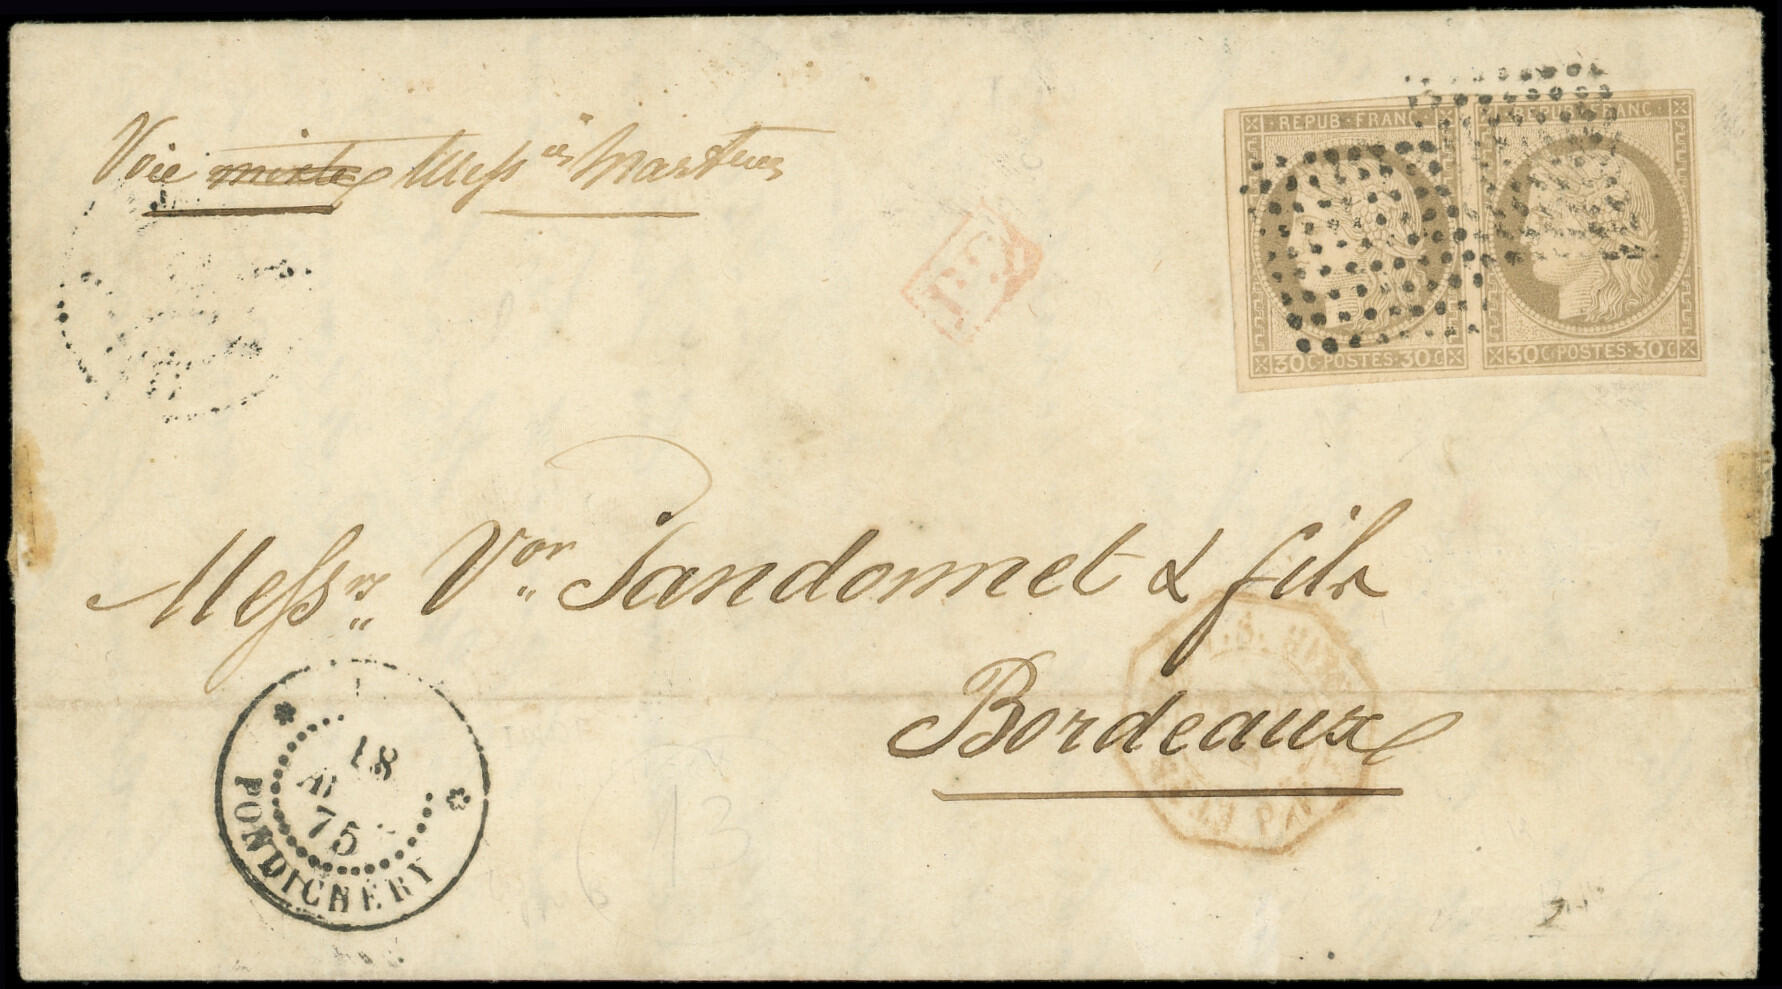 Voie ~~mixte~~ Mess^ies Maritimes
REPUB·FRANC·
30C·POSTES·30C
REPUB·FRANC·
30C·POSTES·30C
P.D.
Mess^rs V^or Sandonnet & fils
Bordeaux
18
75
PONDICHÉRY
13